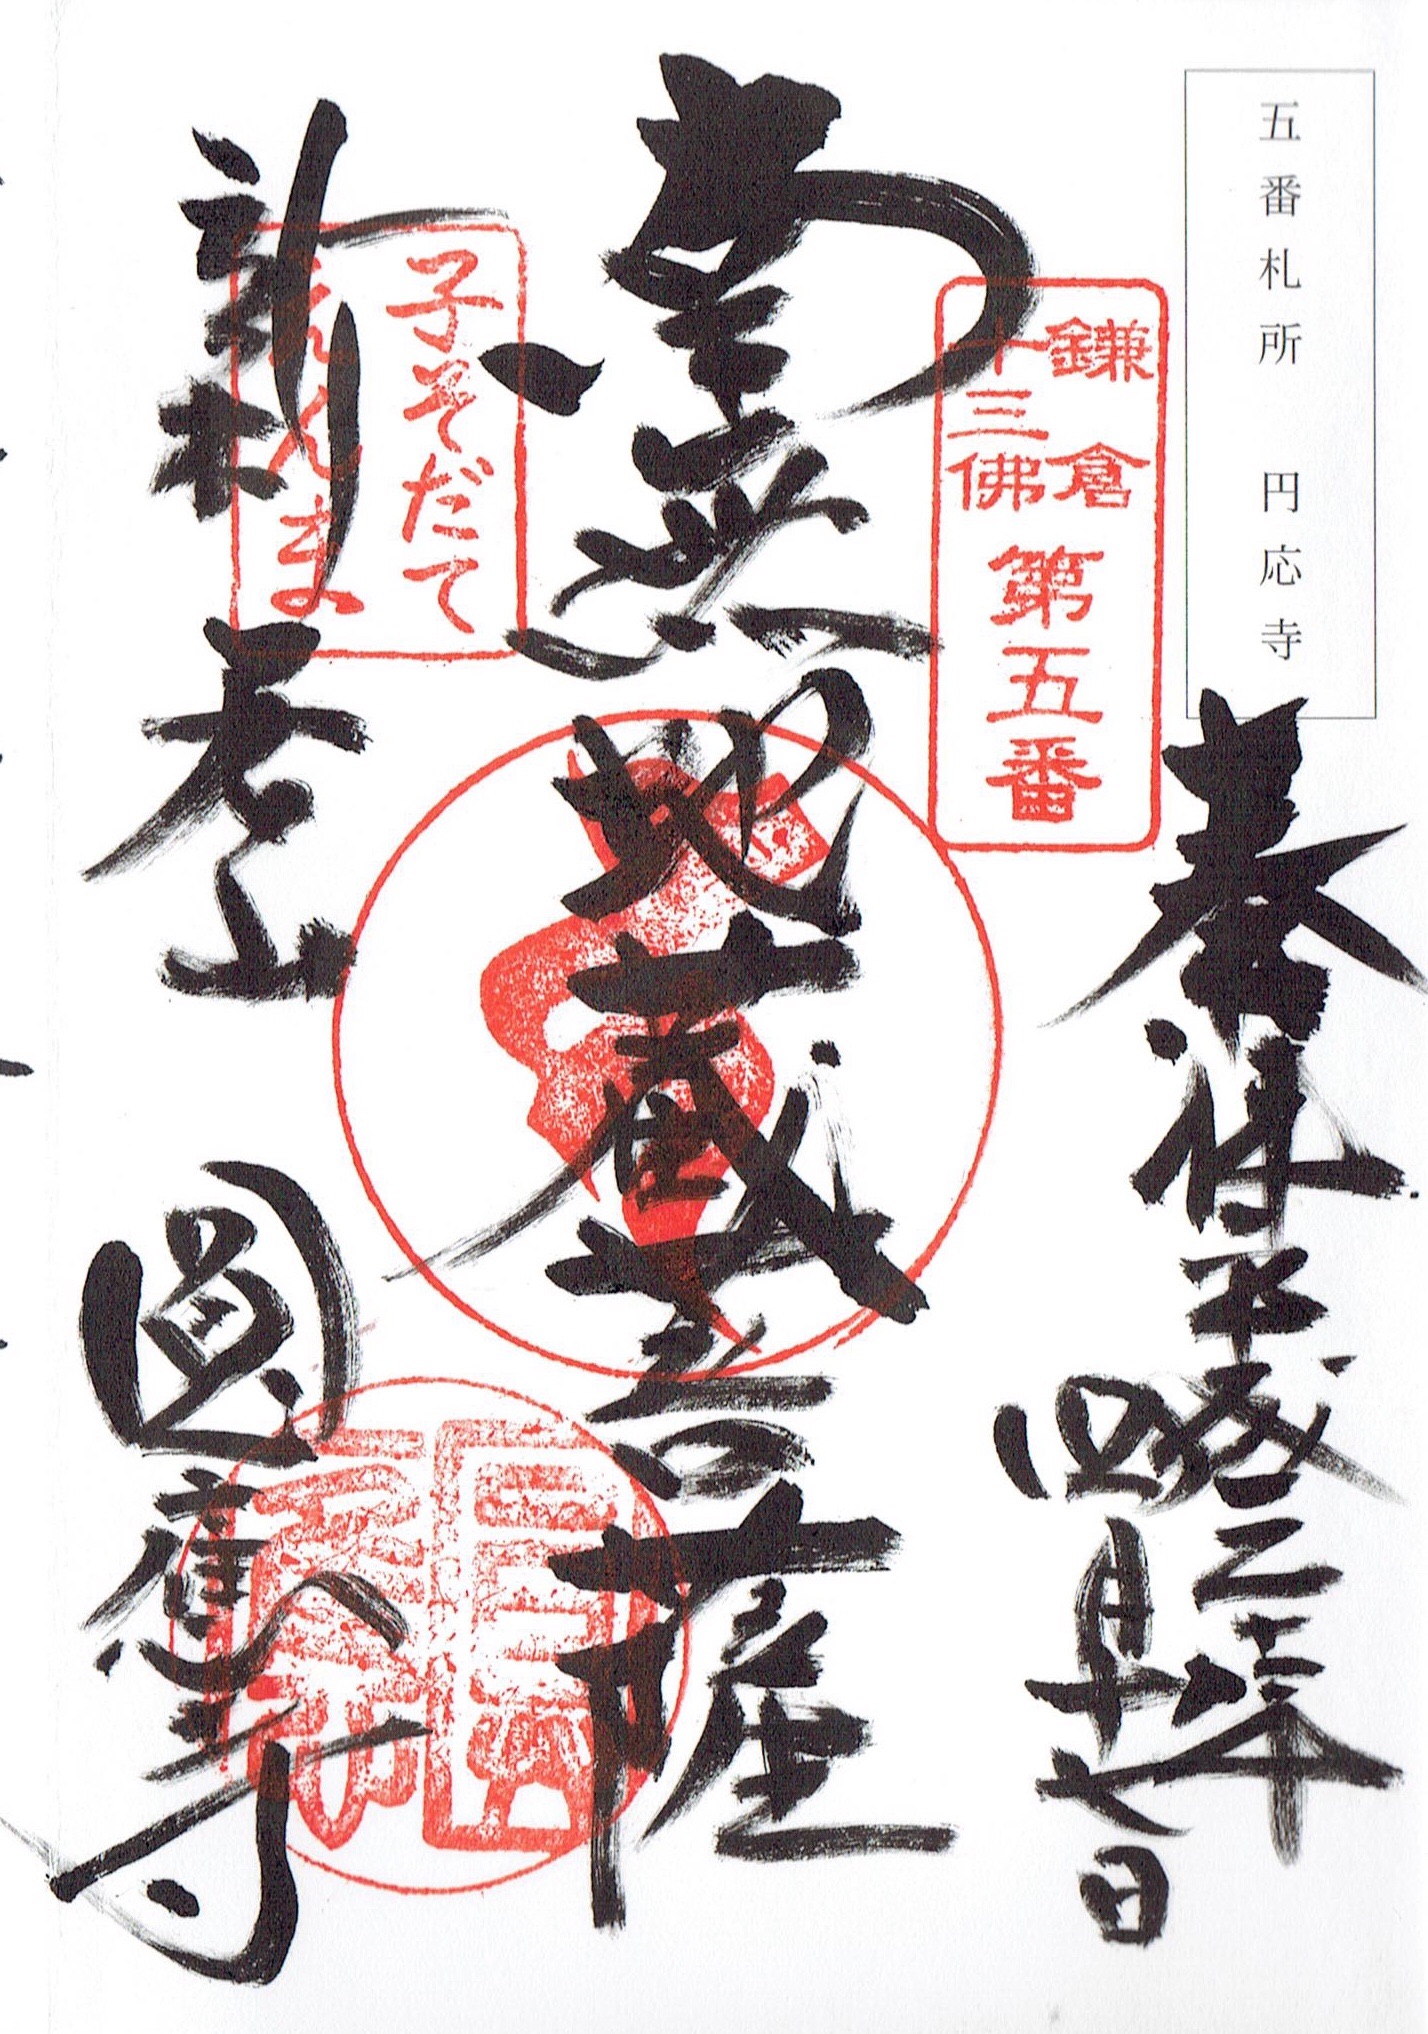 五番札所　円応寺
奉拝 平成二十六年
四月十七日
鎌倉
十三佛
第五番
南無地蔵菩薩
子そだて
えんま
新居山
圓應寺